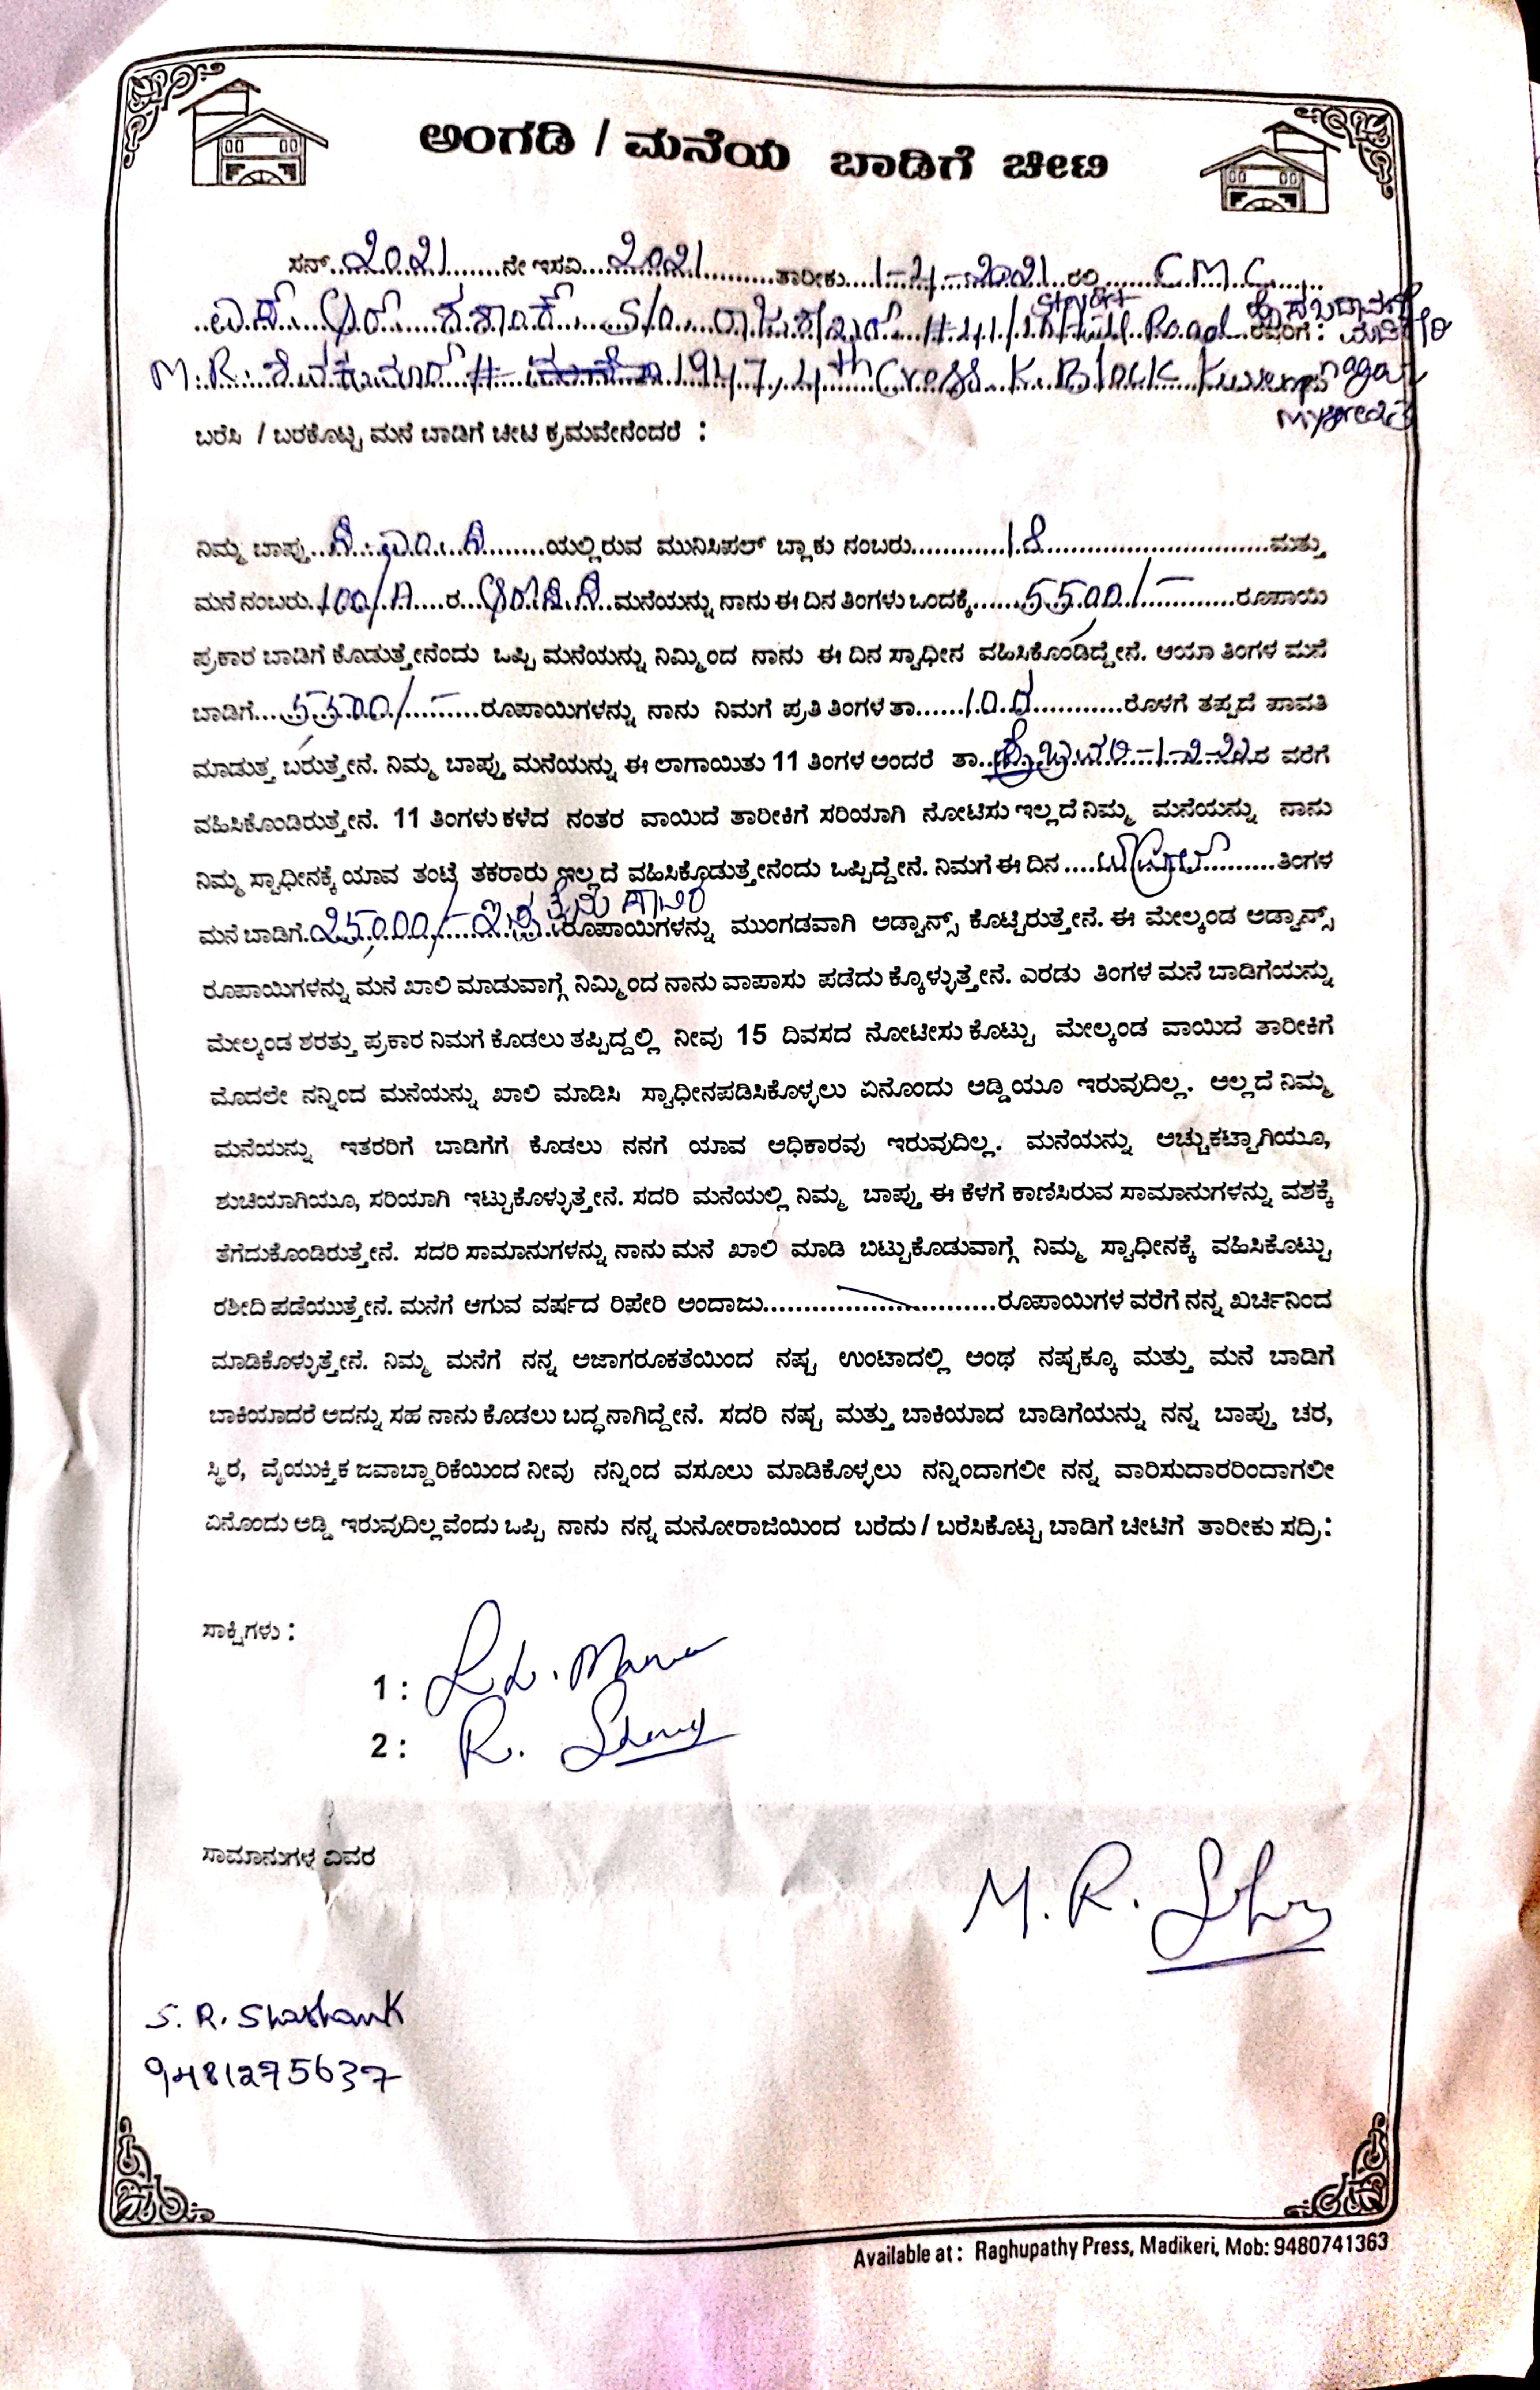 ಅಂಗಡಿ / ಮನೆಯ ಬಾಡಿಗೆ ಚೀಟಿ
ಸನ್...೨೦೨೧...ನೇ ಇಸವಿ...೨೦೨೧...ತಾರೀಕು...1-4-೨೦೨1 ರಲ್ಲಿ...C.M.C...
ಎಸ್. ಆರ್. ಶಶಾಂಕ್ S/o ರಾಜಶೇಖರ್ # 41/1 Stuart Hill Road ರವರಿಗೆ :
M.R. ಶಿವಕುಮಾರ್ # 1947, 4th Cross K. Block Kuvempunagar
Mysore23
ಬರೆಸಿ / ಬರಕೊಟ್ಟ ಮನೆ ಬಾಡಿಗೆ ಚೀಟಿ ಕ್ರಮವೇನೆಂದರೆ :
ನಿಮ್ಮ ಬಾಪ್ತು...ಸಿ.ಎಂ.ಸಿ...ಯಲ್ಲಿರುವ ಮುನಿಸಿಪಲ್ ಬ್ಲಾಕು ನಂಬರು...18...ಮತ್ತು
ಮನೆ ನಂಬರು. 100/A....ರ......ಮನೆಯನ್ನು ನಾನು ಈ ದಿನ ತಿಂಗಳು ಒಂದಕ್ಕೆ...5500/-...ರೂಪಾಯಿ
ಪ್ರಕಾರ ಬಾಡಿಗೆ ಕೊಡುತ್ತೇನೆಂದು ಒಪ್ಪಿ ಮನೆಯನ್ನು ನಿಮ್ಮಿಂದ ನಾನು ಈ ದಿನ ಸ್ವಾಧೀನ ವಹಿಸಿಕೊಂಡಿದ್ದೇನೆ. ಆಯಾ ತಿಂಗಳ ಮನೆ
ಬಾಡಿಗೆ...5500/-...ರೂಪಾಯಿಗಳನ್ನು ನಾನು ನಿಮಗೆ ಪ್ರತಿ ತಿಂಗಳ ತಾ...10ರ...ರೊಳಗೆ ತಪ್ಪದೆ ಪಾವತಿ
ಮಾಡುತ್ತ ಬರುತ್ತೇನೆ. ನಿಮ್ಮ ಬಾಪ್ತು ಮನೆಯನ್ನು ಈ ಲಾಗಾಯಿತು 11 ತಿಂಗಳ ಅಂದರೆ ತಾ..ಫೆಬ್ರುವರಿ-1-೨-೨೨ರ ವರೆಗೆ
ವಹಿಸಿಕೊಂಡಿರುತ್ತೇನೆ. 11 ತಿಂಗಳು ಕಳೆದ ನಂತರ ವಾಯಿದೆ ತಾರೀಕಿಗೆ ಸರಿಯಾಗಿ ನೋಟಿಸು ಇಲ್ಲದೆ ನಿಮ್ಮ ಮನೆಯನ್ನು ನಾನು
ನಿಮ್ಮ ಸ್ವಾಧೀನಕ್ಕೆ ಯಾವ ತಂಟೆ ತಕರಾರು ಇಲ್ಲದೆ ವಹಿಸಿಕೊಡುತ್ತೇನೆಂದು ಒಪ್ಪಿದ್ದೇನೆ. ನಿಮಗೆ ಈ ದಿನ ....ಏಪ್ರಿಲ್....ತಿಂಗಳ
ಮನೆ ಬಾಡಿಗೆ.೨5,000/- ಇಪ್ಪತೈದು ಸಾವಿರ ರೂಪಾಯಿಗಳನ್ನು ಮುಂಗಡವಾಗಿ ಅಡ್ವಾನ್ಸ್ ಕೊಟ್ಟಿರುತ್ತೇನೆ. ಈ ಮೇಲ್ಕಂಡ ಅಡ್ವಾನ್ಸ್
ರೂಪಾಯಿಗಳನ್ನು ಮನೆ ಖಾಲಿ ಮಾಡುವಾಗ್ಗೆ ನಿಮ್ಮಿಂದ ನಾನು ವಾಪಾಸು ಪಡೆದು ಕ್ಕೊಳ್ಳುತ್ತೇನೆ. ಎರಡು ತಿಂಗಳ ಮನೆ ಬಾಡಿಗೆಯನ್ನು
ಮೇಲ್ಕಂಡ ಶರತ್ತು ಪ್ರಕಾರ ನಿಮಗೆ ಕೊಡಲು ತಪ್ಪಿದ್ದಲ್ಲಿ ನೀವು 15 ದಿವಸದ ನೋಟೀಸು ಕೊಟ್ಟು ಮೇಲ್ಕಂಡ ವಾಯಿದೆ ತಾರೀಕಿಗೆ
ಮೊದಲೇ ನನ್ನಿಂದ ಮನೆಯನ್ನು ಖಾಲಿ ಮಾಡಿಸಿ ಸ್ವಾಧೀನಪಡಿಸಿಕೊಳ್ಳಲು ಏನೊಂದು ಅಡ್ಡಿಯೂ ಇರುವುದಿಲ್ಲ. ಅಲ್ಲದೆ ನಿಮ್ಮ
ಮನೆಯನ್ನು ಇತರರಿಗೆ ಬಾಡಿಗೆಗೆ ಕೊಡಲು ನನಗೆ ಯಾವ ಅಧಿಕಾರವು ಇರುವುದಿಲ್ಲ. ಮನೆಯನ್ನು ಅಚ್ಚುಕಟ್ಟಾಗಿಯೂ,
ಶುಚಿಯಾಗಿಯೂ, ಸರಿಯಾಗಿ ಇಟ್ಟುಕೊಳ್ಳುತ್ತೇನೆ. ಸದರಿ ಮನೆಯಲ್ಲಿ ನಿಮ್ಮ ಬಾಪ್ತು ಈ ಕೆಳಗೆ ಕಾಣಿಸಿರುವ ಸಾಮಾನುಗಳನ್ನು ವಶಕ್ಕೆ
ತೆಗೆದುಕೊಂಡಿರುತ್ತೇನೆ. ಸದರಿ ಸಾಮಾನುಗಳನ್ನು ನಾನು ಮನೆ ಖಾಲಿ ಮಾಡಿ ಬಿಟ್ಟುಕೊಡುವಾಗ್ಗೆ ನಿಮ್ಮ ಸ್ವಾಧೀನಕ್ಕೆ ವಹಿಸಿಕೊಟ್ಟು
ರಶೀದಿ ಪಡೆಯುತ್ತೇನೆ. ಮನೆಗೆ ಆಗುವ ವರ್ಷದ ರಿಪೇರಿ ಅಂದಾಜು..............................ರೂಪಾಯಿಗಳ ವರೆಗೆ ನನ್ನ ಖರ್ಚಿನಿಂದ
ಮಾಡಿಕೊಳ್ಳುತ್ತೇನೆ. ನಿಮ್ಮ ಮನೆಗೆ ನನ್ನ ಅಜಾಗರೂಕತೆಯಿಂದ ನಷ್ಟ ಉಂಟಾದಲ್ಲಿ ಅಂಥ ನಷ್ಟಕ್ಕೂ ಮತ್ತು ಮನೆ ಬಾಡಿಗೆ
ಬಾಕಿಯಾದರೆ ಅದನ್ನು ಸಹ ನಾನು ಕೊಡಲು ಬದ್ಧನಾಗಿದ್ದೇನೆ. ಸದರಿ ನಷ್ಟ ಮತ್ತು ಬಾಕಿಯಾದ ಬಾಡಿಗೆಯನ್ನು ನನ್ನ ಬಾಪ್ತು ಚರ,
ಸ್ಥಿರ, ವೈಯುಕ್ತಿಕ ಜವಾಬ್ದಾರಿಕೆಯಿಂದ ನೀವು ನನ್ನಿಂದ ವಸೂಲು ಮಾಡಿಕೊಳ್ಳಲು ನನ್ನಿಂದಾಗಲೀ ನನ್ನ ವಾರಿಸುದಾರರಿಂದಾಗಲೀ
ಏನೊಂದು ಅಡ್ಡಿ ಇರುವುದಿಲ್ಲವೆಂದು ಒಪ್ಪಿ ನಾನು ನನ್ನ ಮನೋರಾಜಿಯಿಂದ ಬರೆದು / ಬರೆಸಿಕೊಟ್ಟ ಬಾಡಿಗೆ ಚೀಟಿಗೆ ತಾರೀಕು ಸದ್ರಿ:
ಸಾಕ್ಷಿಗಳು :
1 :
2 : R.
ಸಾಮಾನುಗಳ ವಿವರ
M. R.
S. R. Shashank
9481275637
Available at : Raghupathy Press, Madikeri, Mob: 9480741363